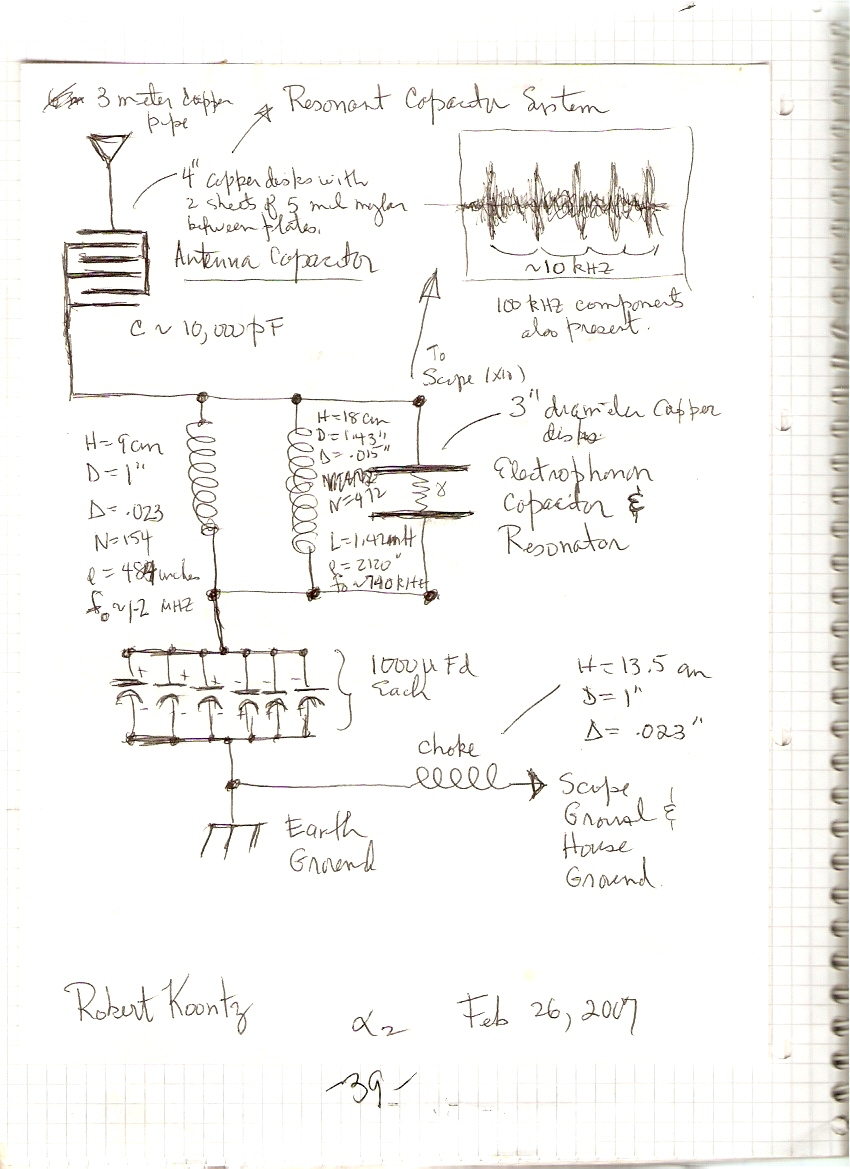 3 meter copper
pipe
Resonant Capacitor System
4" copper disks with
2 sheets of 5 mil mylar
between plates.
Antenna Capacitor
C ~ 10,000 pF
~10 kHz
100 kHz components
also present.
To
Scope (x10)
3" diameter copper
disks
Electrophonon
Capacitor &
Resonator
H=9cm
D=1"
Δ=.023
N=154
ℓ=484 inches
f₀~1-2 MHz
H=18cm
D=1.43"
Δ=.015"
N=472
L=1.42mH
ℓ=2120"
f₀~740kHz
γ
1000μFd
Each
H=13.5 cm
D=1"
Δ=.023"
Choke
Scope
Ground &
House
Ground.
Earth
Ground
Robert Koontz
α₂
Feb 26, 2007
-39-